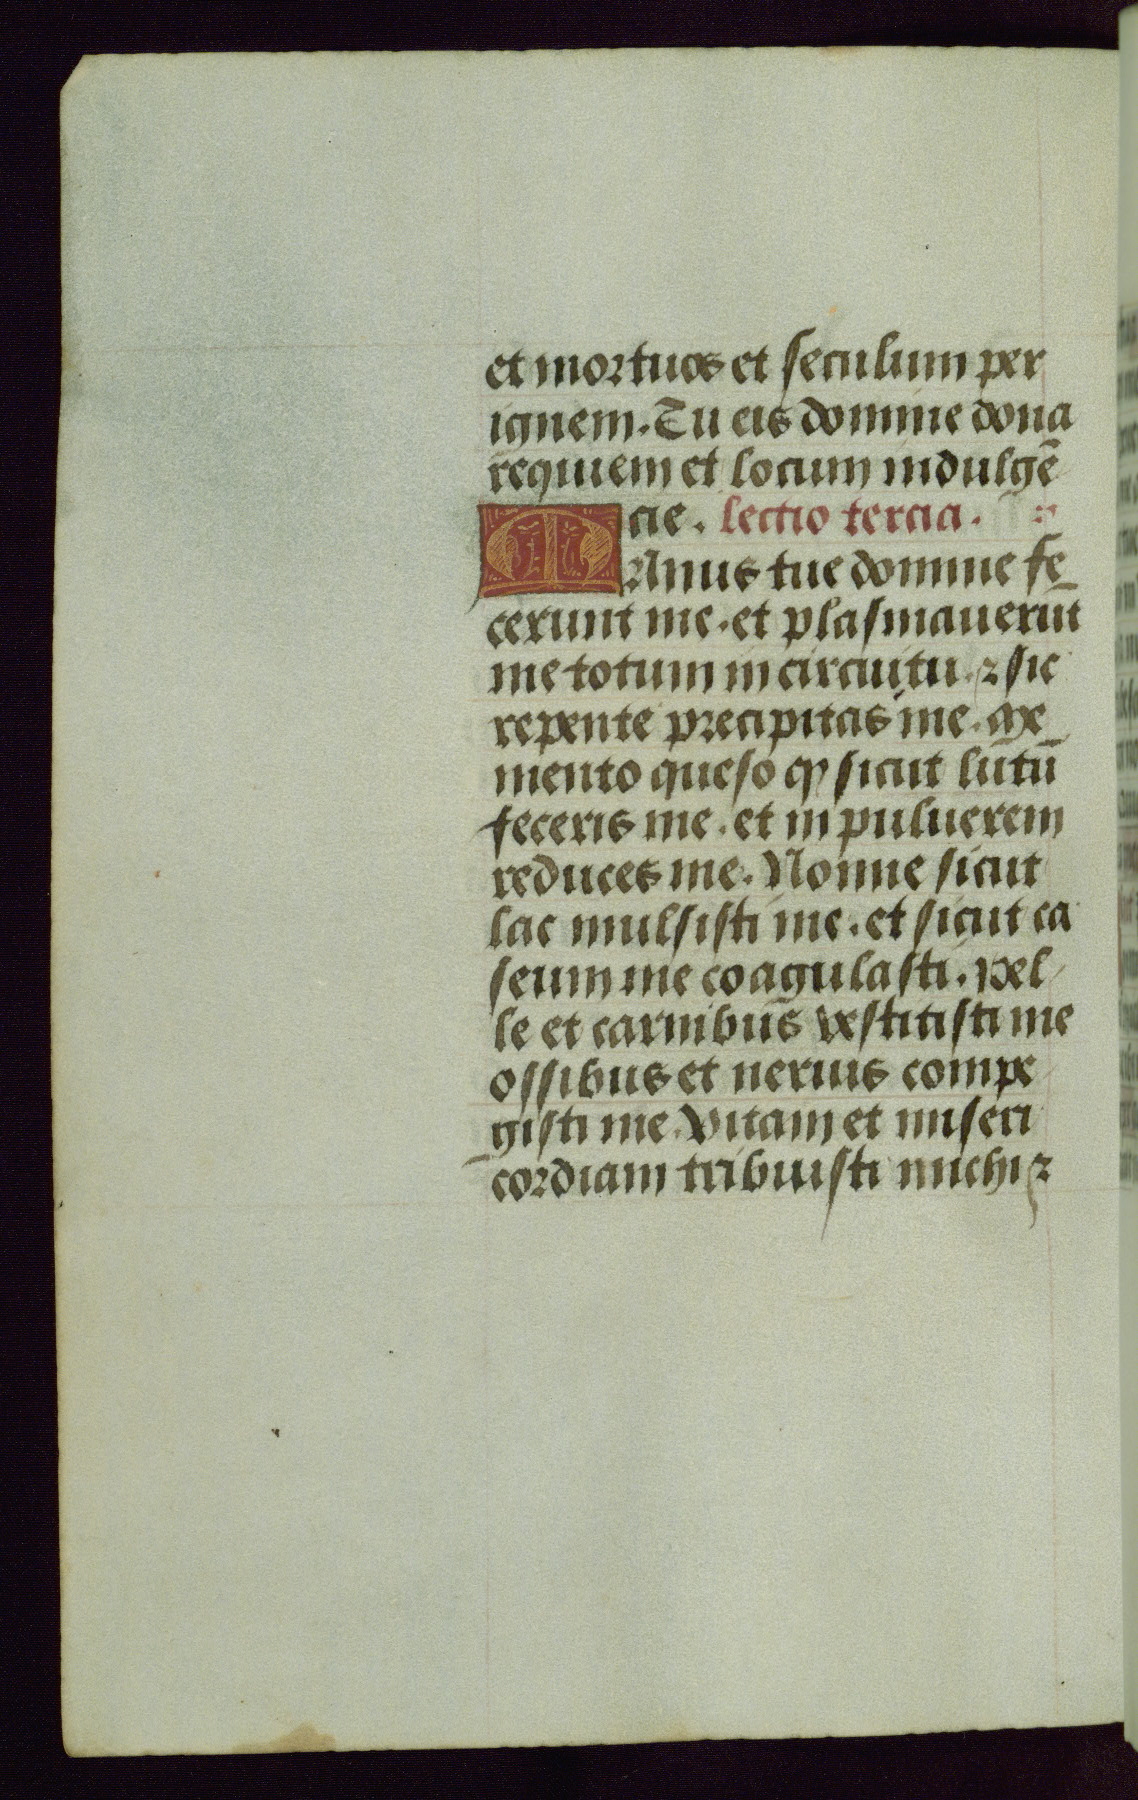 et mortuos et seculum per
ignem. Tu eis domine dona
requiem et locum indulgē
cie. lectio tercia.
MAnus tue domine fe
cerunt me. et plasmauerūt
me totum in circuitu. ⁊ sic
repente precipitas me. Me
mento queso ꝙ sicut lutū
feceris me. et in puluerem
reduces me. Nonne sicut
lac mulsisti me. et sicut ca
seum me coagulasti. Pel
le et carnibus vestitisti me
ossibus et neruis compe
gisti me. Vitam et miseri
cordiam tribuisti michi ⁊